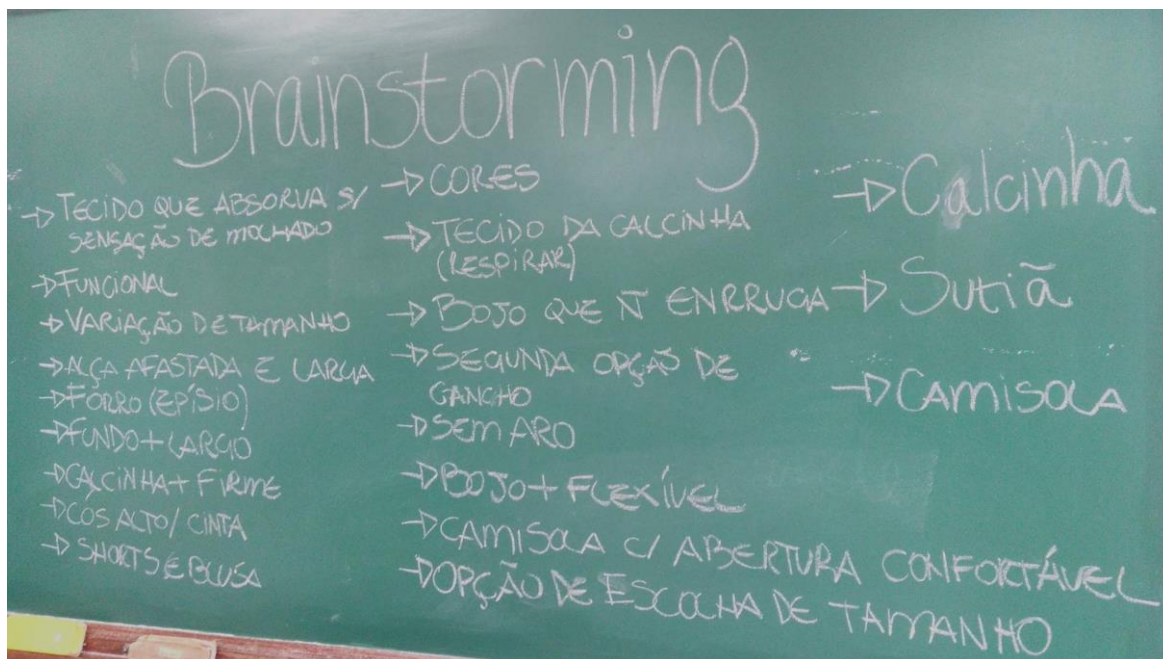 Brainstorming
→ TECIDO QUE ABSORVA S/
SENSAÇÃO DE MOLHADO
→ FUNCIONAL
→ VARIAÇÃO DE TAMANHO
→ ALÇA AFASTADA E LARGA
→ FORRO (EPÍSIO)
→ FUNDO + LARGO
→ CALCINHA + FIRME
→ CÓS ALTO / CINTA
→ SHORTS E BLUSA
→ CORES
→ TECIDO DA CALCINHA
(RESPIRAR)
→ BOJO QUE Ñ ENRRUGA
→ SEGUNDA OPÇÃO DE
GANCHO
→ SEM ARO
→ BOJO + FLEXÍVEL
→ CAMISOLA C/ ABERTURA CONFORTÁVEL
→ OPÇÃO DE ESCOLHA DE TAMANHO
→ Calcinha
→ Sutiã
→ CAMISOLA